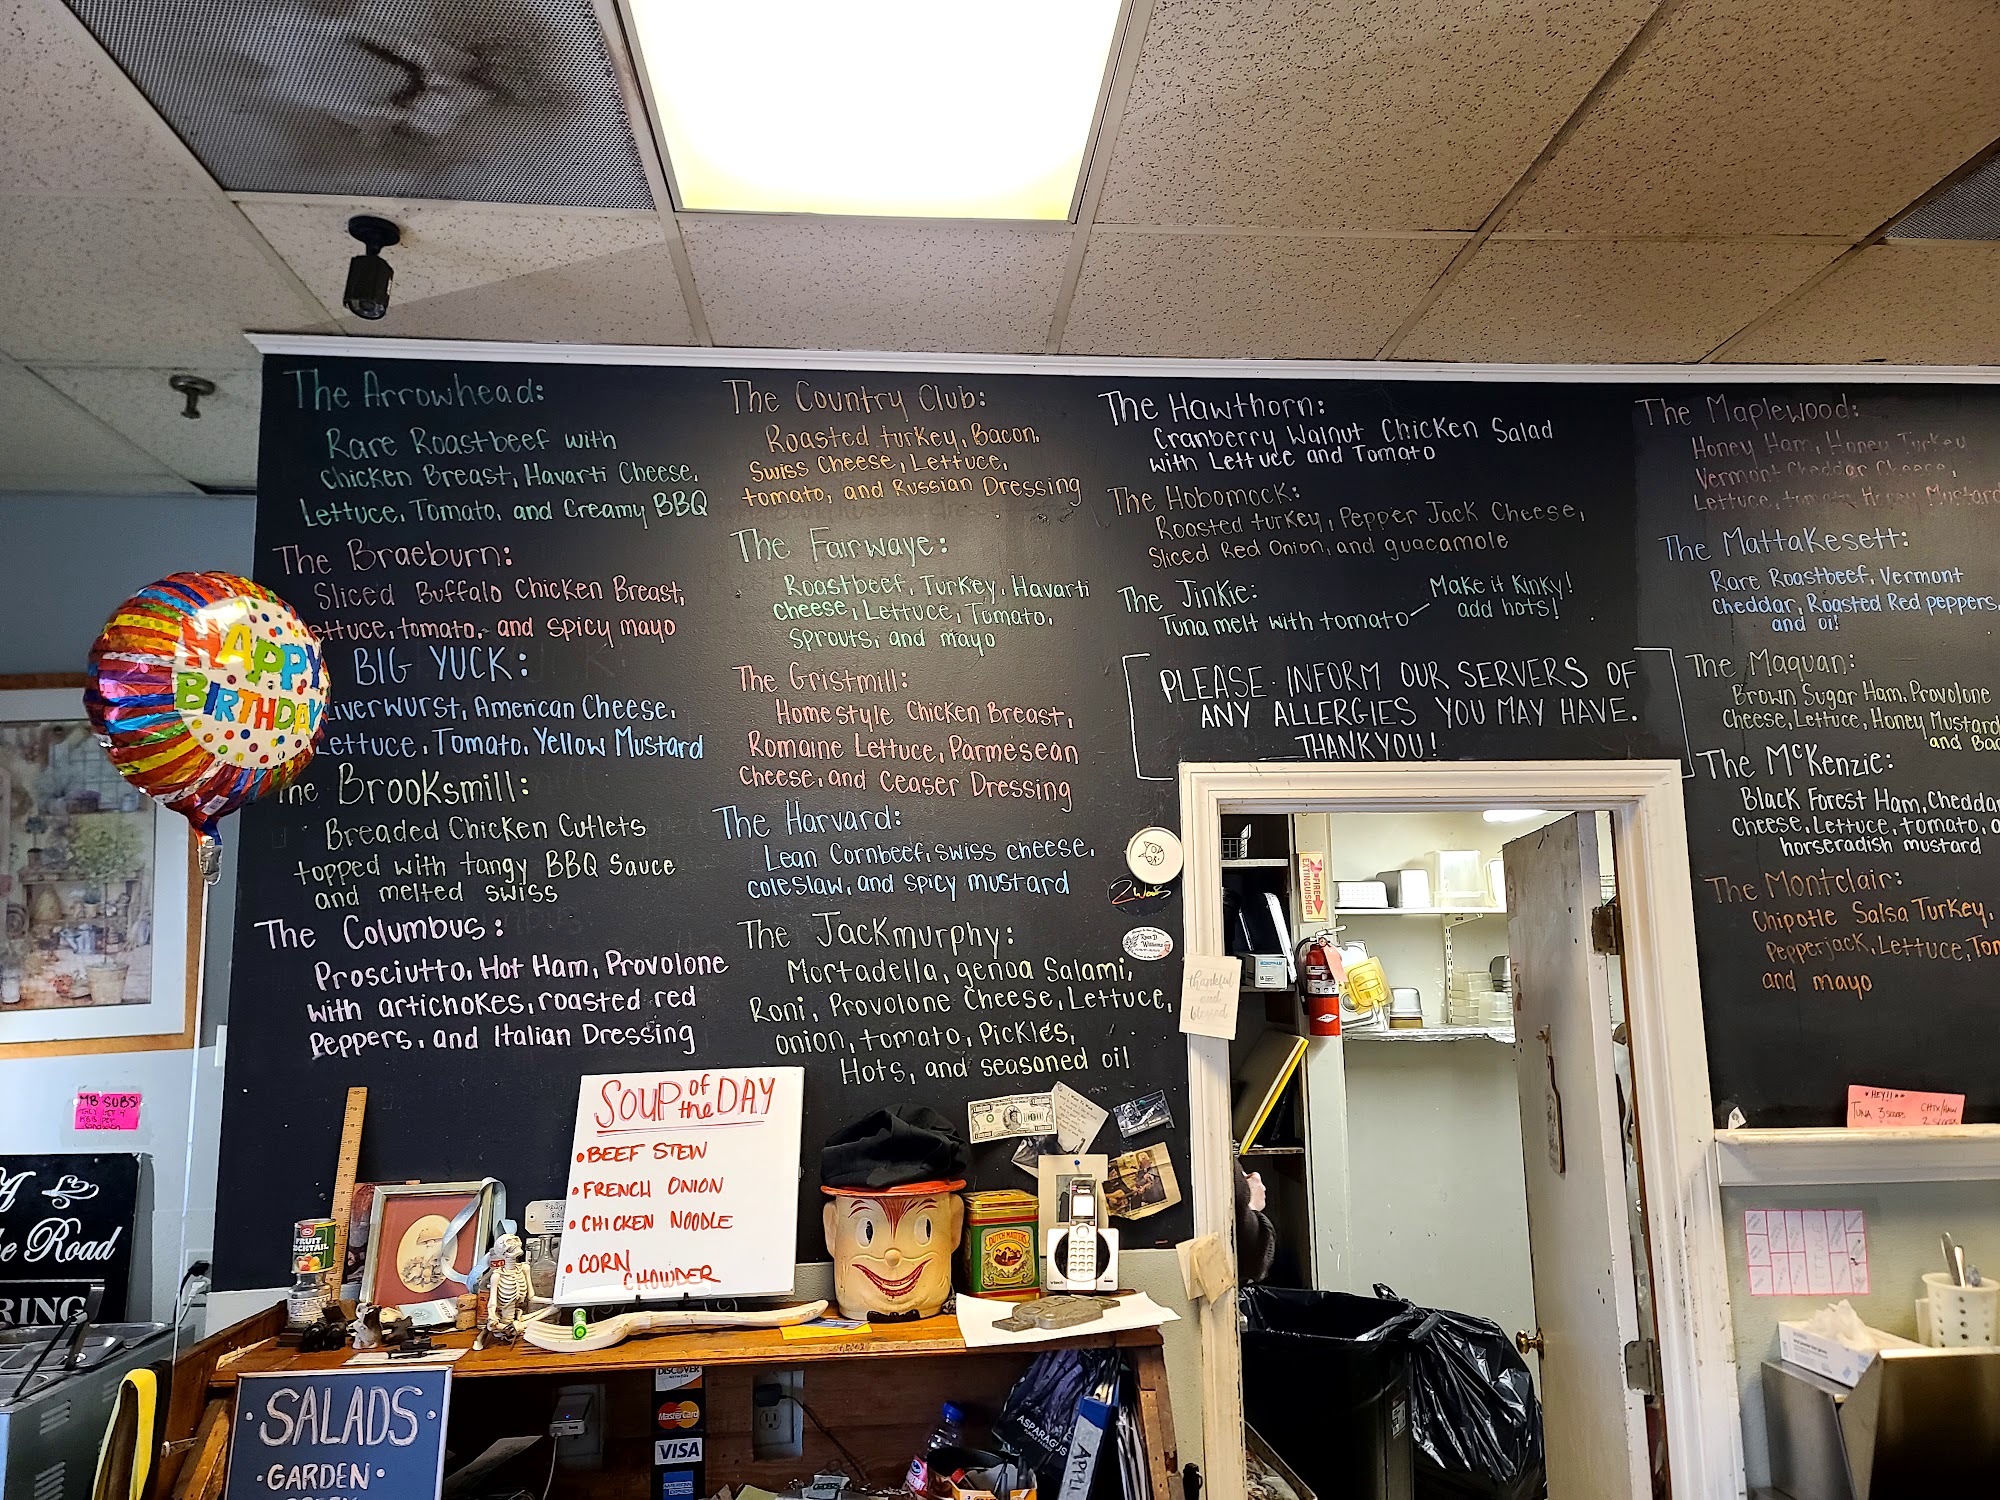 The Arrowhead:
Rare Roastbeef with
Chicken Breast, Havarti Cheese,
Lettuce, Tomato, and Creamy BBQ
The Braeburn:
Sliced Buffalo Chicken Breast,
ettuce, tomato, and spicy mayo
BIG YUCK:
iverwurst, American Cheese,
Lettuce, Tomato, Yellow Mustard
The Brooksmill:
Breaded Chicken Cutlets
topped with tangy BBQ Sauce
and melted swiss
The Columbus:
Prosciutto, Hot Ham, Provolone
with artichokes, roasted red
Peppers, and Italian Dressing
The Country Club:
Roasted turkey, Bacon,
Swiss Cheese, Lettuce,
tomato, and Russian Dressing
The Fairwaye:
Roastbeef, Turkey, Havarti
cheese, Lettuce, Tomato,
sprouts, and mayo
The Gristmill:
Homestyle Chicken Breast,
Romaine Lettuce, Parmesean
Cheese, and Ceaser Dressing
The Harvard:
Lean Cornbeef, swiss cheese,
coleslaw, and spicy mustard
The Jackmurphy:
Mortadella, genoa Salami,
Roni, Provolone Cheese, Lettuce,
onion, tomato, Pickles,
Hots, and seasoned oil
The Hawthorn:
Cranberry Walnut Chicken Salad
with Lettuce and Tomato
The Hobomock:
Roasted turkey, Pepper Jack Cheese,
Sliced Red Onion, and guacamole
The Jinkie:
Tuna melt with tomato
Make it Kinky!
add hots!
PLEASE INFORM OUR SERVERS OF
ANY ALLERGIES YOU MAY HAVE.
THANKYOU!
The Maplewood:
Honey Ham, Honey Turkey
Vermont Cheddar Cheese,
Lettuce, tomato, Honey Mustard
The Mattakesett:
Rare Roastbeef, Vermont
Cheddar, Roasted Red peppers,
and oil
The Maquan:
Brown Sugar Ham, Provolone
Cheese, Lettuce, Honey Mustard
and Bac
The McKenzie:
Black Forest Ham, Cheddar
Cheese, Lettuce, tomato,
horseradish mustard
The Montclair:
Chipotle Salsa Turkey,
Pepperjack, Lettuce, Tom
and mayo
HAPPY
BIRTHDAY
SOUP of the DAY
BEEF STEW
FRENCH ONION
CHICKEN NOODLE
CORN
CHOWDER
SALADS
GARDEN
thankful
and
blessed
FIRE
EXTINGUISHER
MB SUBS
HEY!!
TUNA 3 scoops
FRUIT
COCKTAIL
DUTCH MASTERS
Road
RING
DISCOVER
MasterCard
VISA
ASPARAGUS